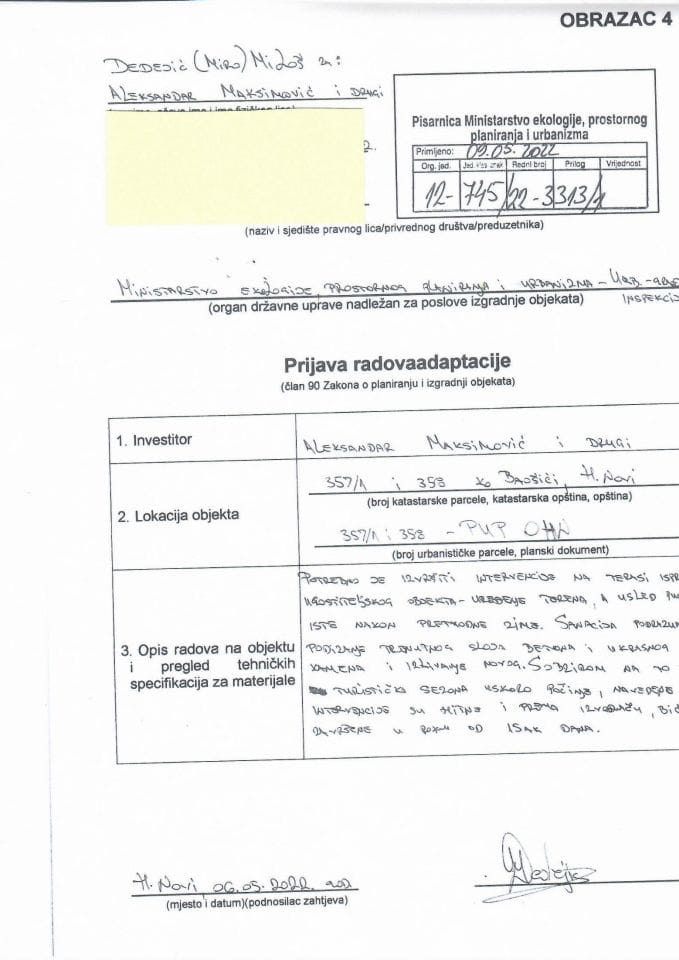 OBRAZAC 4
DEDEJIĆ (MIRO) MILOŠ za:
ALEKSANDAR MAKSIMOVIĆ i DRUGI
2.
Pisarnica Ministarstvo ekologije, prostornog
planiranja i urbanizma
Primljeno: 09.05.2022
Org. jed. Jed. klas. znak Redni broj Prilog Vrijednost
12- 745/22-3313/1
(naziv i sjedište pravnog lica/privrednog društva/preduzetnika)
MINISTARSTVO EKOLOGIJE, PROSTORNOG PLANIRANJA I URBANIZMA -
INSPEKCIJ
(organ državne uprave nadležan za poslove izgradnje objekata)
Prijava radovaadaptacije
(član 90 Zakona o planiranju i izgradnji objekata)
1. Investitor
ALEKSANDAR MAKSIMOVIĆ i DRUGI
2. Lokacija objekta
357/1 i 358 KO BAOŠIĆI, H. NOVI
(broj katastarske parcele, katastarska opština, opština)
357/1 i 358 - PUP OHN
(broj urbanističke parcele, planski dokument)
3. Opis radova na objektu
i pregled tehničkih
specifikacija za materijale
POTREBNO JE IZVRŠITI INTERVENCIJE NA TERASI ISPR
UGOSTITELJSKOG OBJEKTA - UREĐENJE TERENA, A USLED
ISTE NAKON PRETHODNE ZIME. SANACIJA PODRAZUM
PODIZANJE TRENUTNOG SLOJA BETONA I UKRASNOG
KAMENA I IZLIVANJE NOVOG. S OBZIROM NA TO
TURISTIČKA SEZONA USKORO POČINJE, NAVEDENE
INTERVENCIJE SU HITNE I PREMA IZVOĐAČU, BIĆ
ZAVRŠENE U ROKU OD 15AK DANA.
H. Novi 06.05.2022. god
(mjesto i datum)(podnosilac zahtjeva)